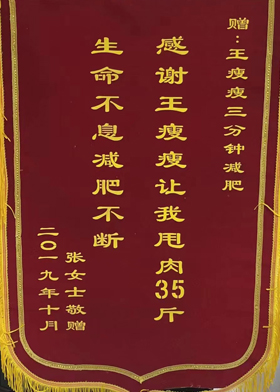 赠:王瘦瘦三分钟减肥
感谢王瘦瘦让我甩肉35斤
生命不息减肥不断
张女士敬赠
二〇一九年十月